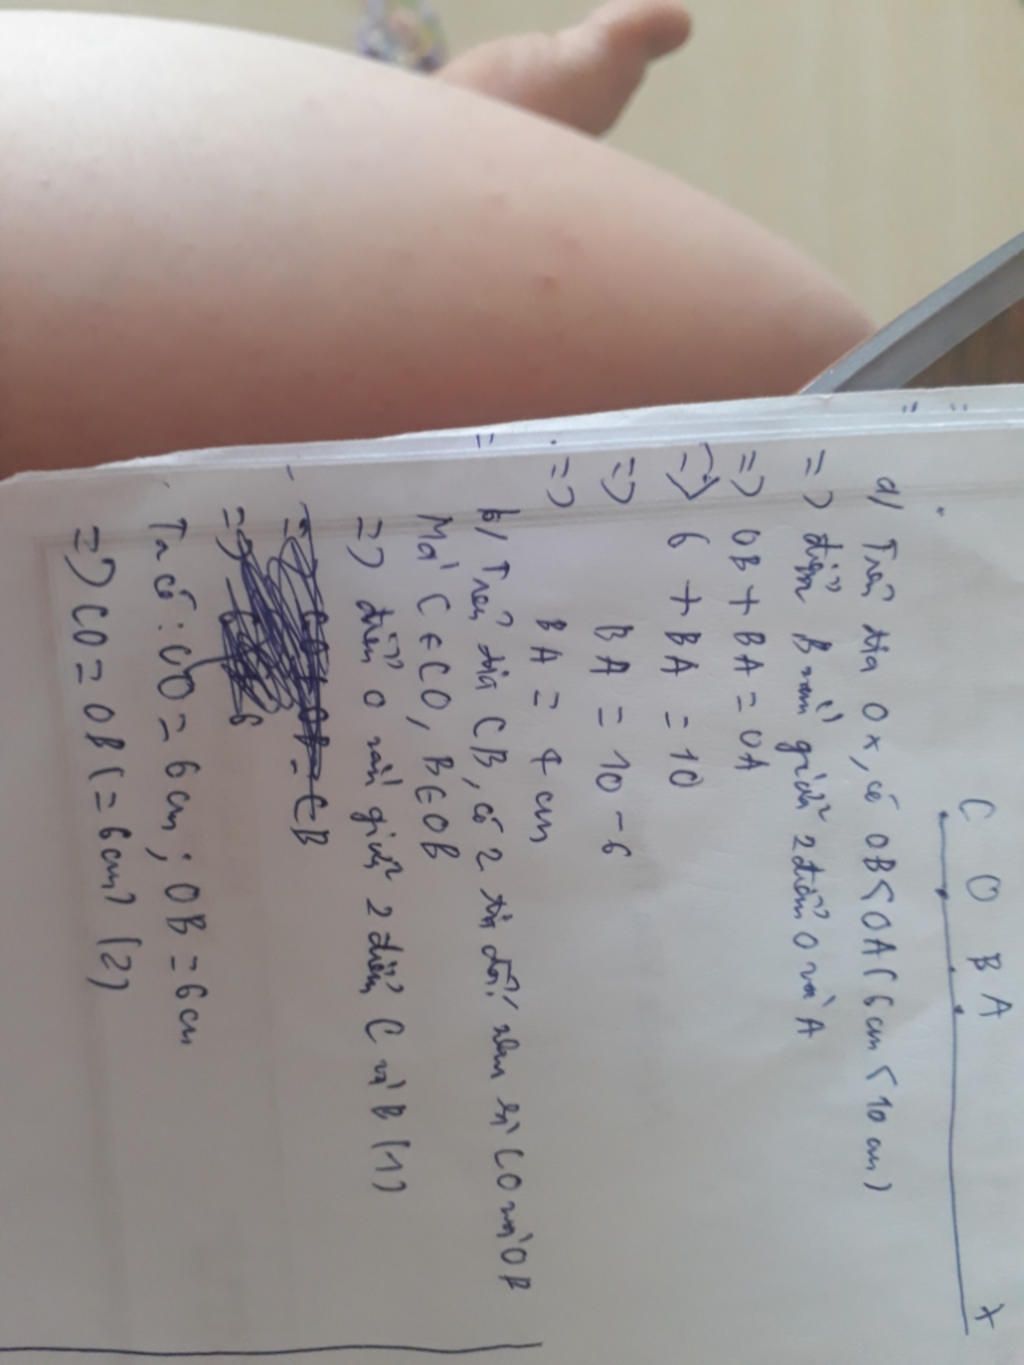 C O B A x
a) Trên tia Ox, có OB < OA (6 cm < 10 cm)
=> điểm B nằm giữa 2 điểm O và A
=> OB + BA = OA
=> 6 + BA = 10
=> BA = 10 - 6
=> BA = 4 cm
b) Trên tia CB, có 2 tia đối nhau là CO và OB
Mà C ∈ CO, B ∈ OB
=> điểm O nằm giữa 2 điểm C và B (1)
= CB
=> 6
Ta có: CO = 6 cm; OB = 6 cm
=> CO = OB (= 6 cm) (2)